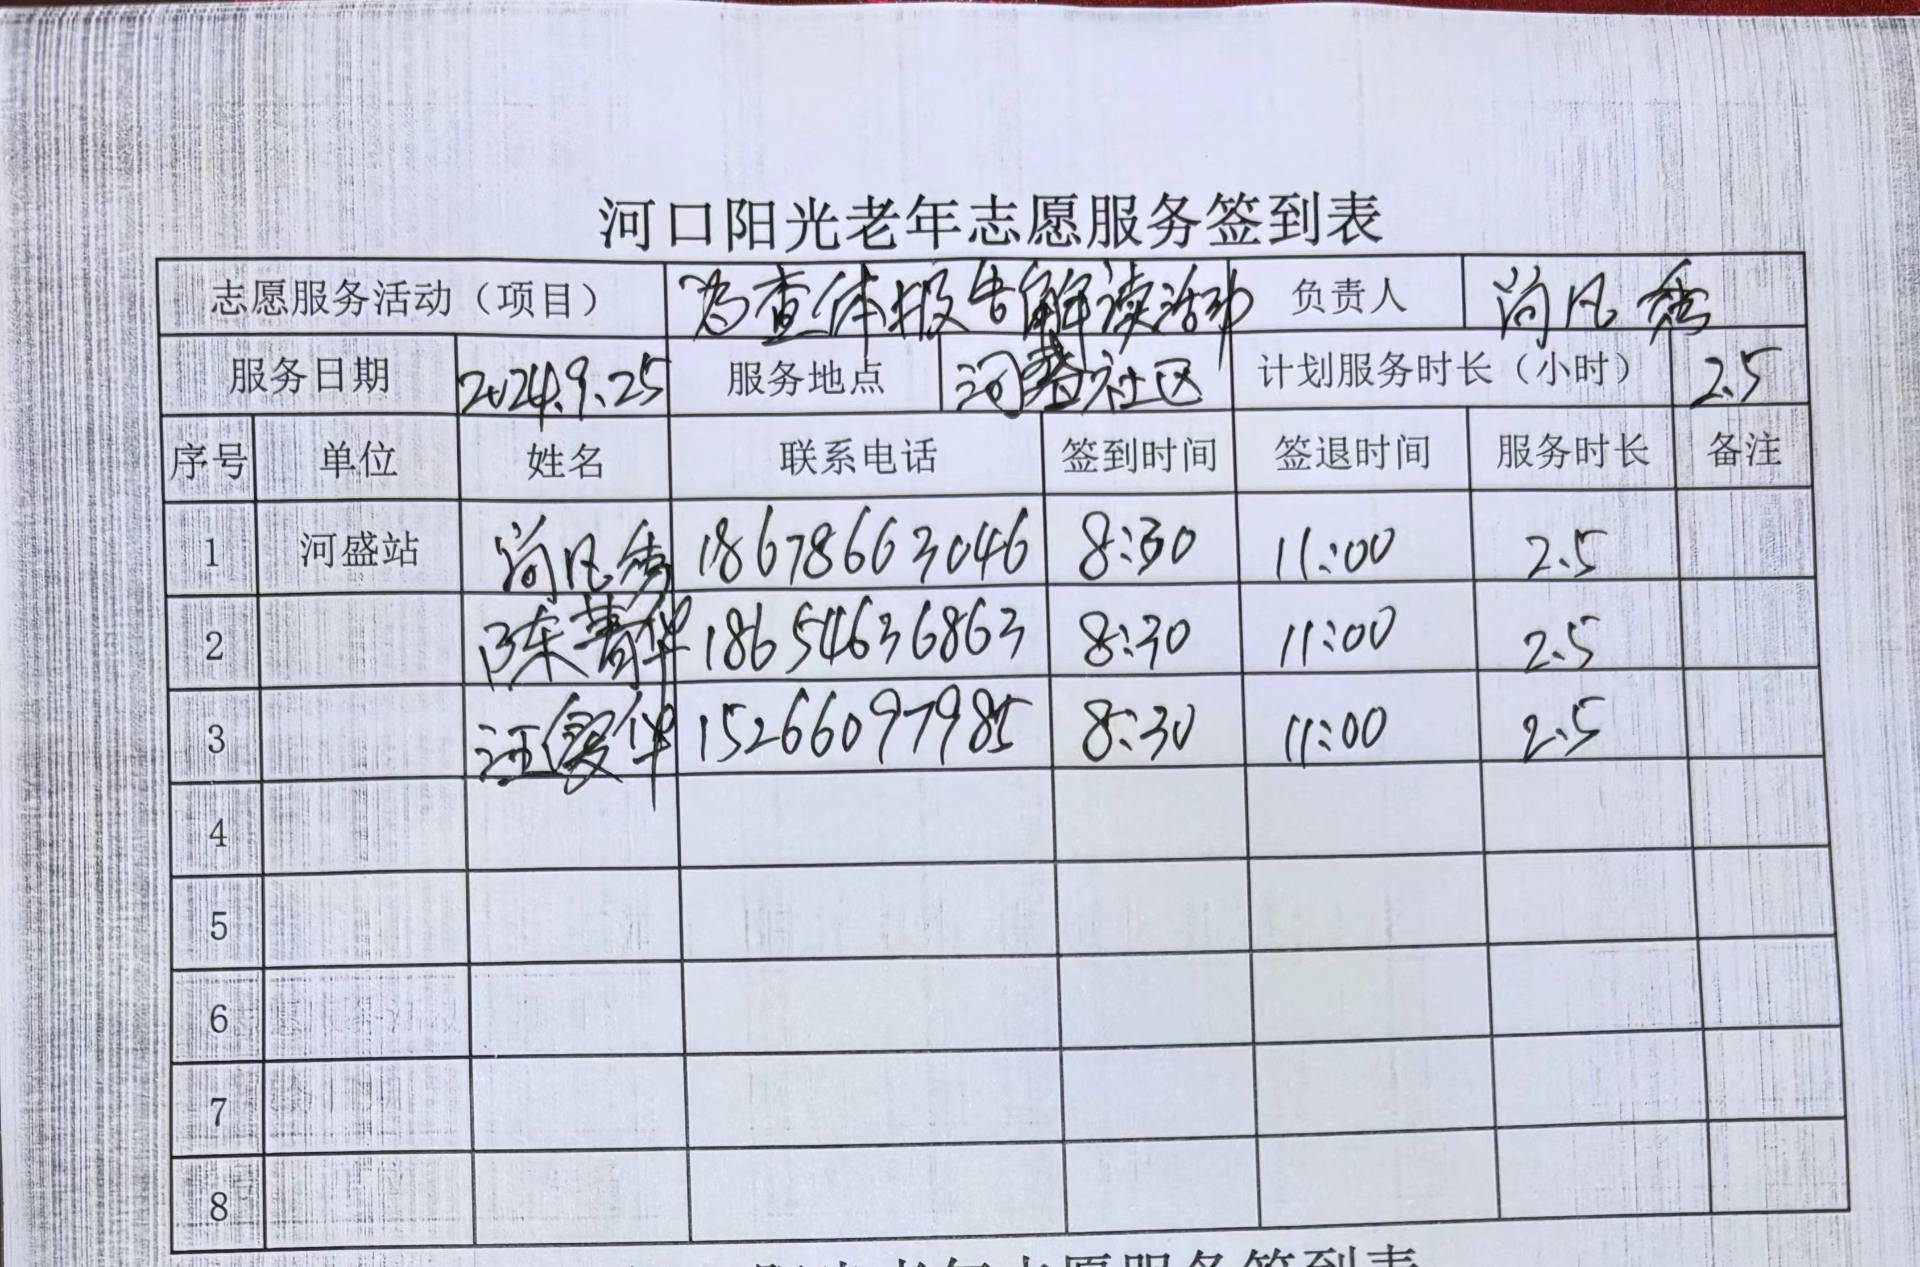 河口阳光老年志愿服务签到表
志愿服务活动（项目） 为查体报告解读活动 负责人 尚凡秀
服务日期 2024.9.25 服务地点 河盛社区 计划服务时长（小时） 2.5
序号 单位 姓名 联系电话 签到时间 签退时间 服务时长 备注
1 河盛站 尚凡秀 18678663046 8:30 11:00 2.5
2 陈菁华 18654636863 8:30 11:00 2.5
3 汪俊华 15266097985 8:30 11:00 2.5
4
5
6
7
8
河口阳光老年志愿服务签到表